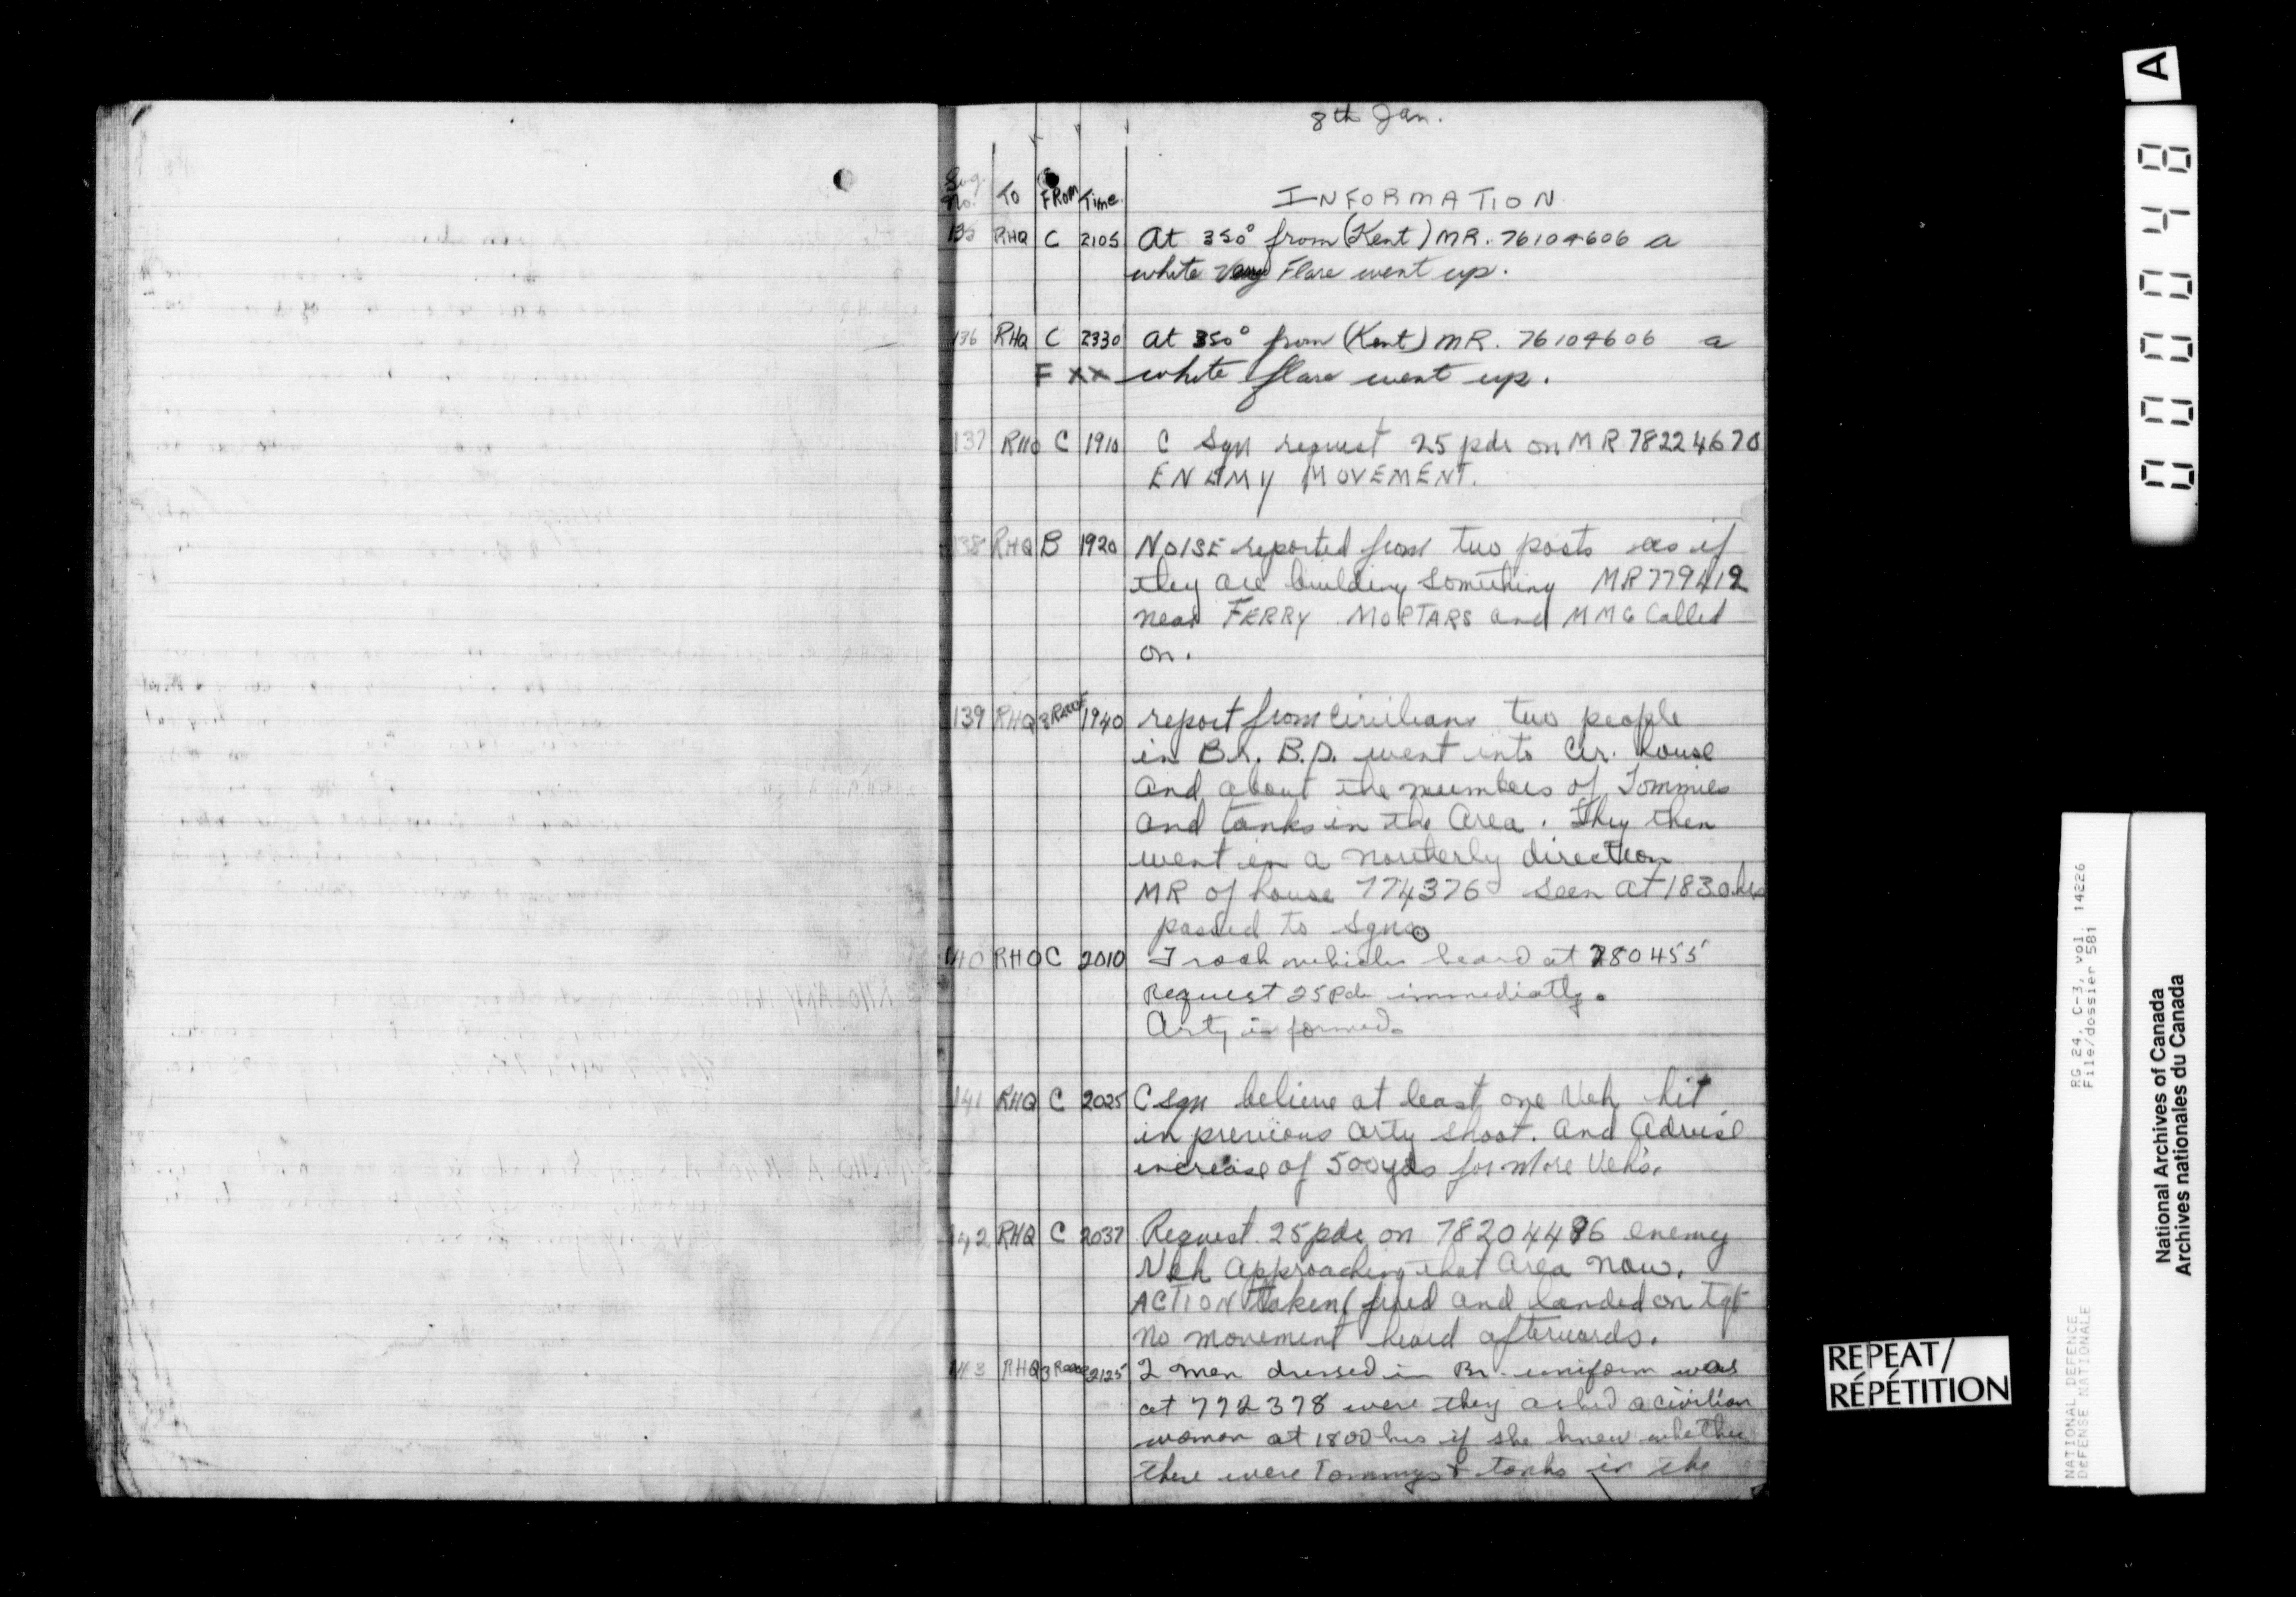 8th Jan.
Log No. To FROM Time. INFORMATION
135 RHQ C 2105 At 350° from (Kent) MR. 76104606 a
white Very Flare went up.
136 RHQ C 2330 at 350° from (Kent) MR. 76104606 a
F xx white flare went up.
137 RHQ C 1910 C Sqn request 25 pdr on MR 78224670
ENEMY MOVEMENT.
138 RHQ B 1920 NOISE reported from two posts as if
they are building something MR 779419
near FERRY. MORTARS and MMG Called
on.
139 RHQ 3 1940 report from civilians two people
in Br. B.D. went into Civ. house
and about the numbers of Tommies
and tanks in the Area. They then
went in a northerly direction
MR of house 774376 seen at 1830 hrs
passed to Sqns.
140 RHQ C 2010 Track vehicles heard at 780455
Request 25 Pdr immediatly.
Arty informed.
141 RHQ C 2025 C Sqn believe at least one Veh hit
in previous arty shoot. And Advise
increase of 500 yds for more Veh's.
142 RHQ C 2037 Request 25 pdr on 782044 6 enemy
Veh Approaching that area now.
ACTION taken fired and landed on tgt
No movement heard afterwards.
143 RHQ 3 2125 2 men dressed in Br. uniform was
at 772378 were they asked a civilian
woman at 1800 hrs if she knew whether
there were Tommys & tanks in the
A
000048
NATIONAL DEFENCE RG 24, C-3, vol. 14226
DÉFENSE NATIONALE File/dossier 581
National Archives of Canada
Archives nationales du Canada
REPEAT/
RÉPÉTITION